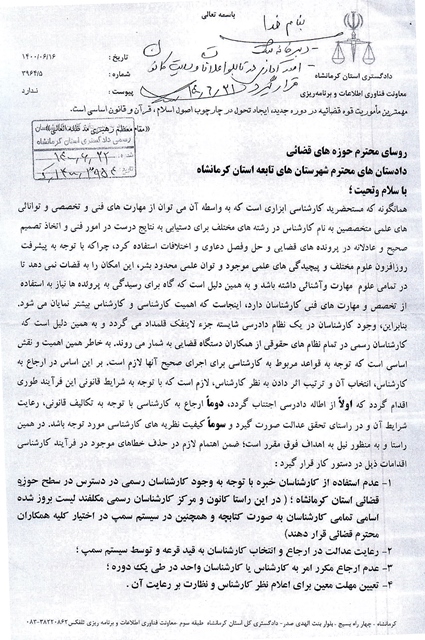 باسمه تعالی
بنام خدا
تاریخ : ۱۴۰۰/۰۶/۱۶
شماره : ۳۹۶۴/۵
پیوست : ندارد
قرار گیرد
دادگستری استان کرمانشاه
معاونت فناوری اطلاعات و برنامه‌ریزی
مهمترین مأموریت قوه قضائیه در دوره جدید، ایجاد تحول در چارچوب اصول اسلام، قرآن و قانون اساسی است.
روسای محترم حوزه های قضائی
دادستان های محترم شهرستان های تابعه استان کرمانشاه
با سلام وتحیت ؛
همانگونه که مستحضرید کارشناسی ابزاری است که به واسطه آن می توان از مهارت های فنی و تخصصی و توانائی
های علمی متخصصین به نام کارشناس در رشته های مختلف برای دستیابی به نتایج درست در امور فنی و اتخاذ تصمیم
صحیح و عادلانه در پرونده های قضایی و حل وفصل دعاوی و اختلافات استفاده کرد، چراکه با توجه به پیشرفت
روزافزون علوم مختلف و پیچیدگی های علمی موجود و توان علمی محدود بشر، این امکان را به قضات نمی دهد تا
در تمامی علوم مهارت وآشنائی داشته باشد و به همین دلیل است که گاه برای رسیدگی به پرونده ها نیاز به استفاده
از تخصص و مهارت های فنی کارشناسان دارد، اینجاست که اهمیت کارشناسی و کارشناس بیشتر نمایان می شود.
بنابراین، وجود کارشناسان در یک نظام دادرسی شایسته جزء لاینفک قلمداد می گردد و به همین دلیل است که
کارشناسان رسمی در تمام نظام های حقوقی از همکاران دستگاه قضایی به شمار می روند. به خاطر همین اهمیت و نقش
اساسی است که توجه به قواعد مربوط به کارشناسی برای اجرای صحیح آنها لازم است. بر این اساس در ارجاع به
کارشناس، انتخاب آن و ترتیب اثر دادن به نظر کارشناس، لازم است که با توجه به شرایط قانونی این فرآیند طوری
اقدام گردد که اولاً از اطاله دادرسی اجتناب گردد، دوماً ارجاع به کارشناسی با توجه به تکالیف قانونی، رعایت
شرایط آن و در راستای تحقق عدالت صورت گیرد و سوماً کیفیت نظریه های کارشناسی مورد توجه باشد. در همین
راستا و به منظور نیل به اهداف فوق مقرر است؛ ضمن اهتمام لازم در حذف خطاهای موجود در فرآیند کارشناسی
اقدامات ذیل در دستور کار قرار گیرد :
۱- عدم استفاده از کارشناسان خبره با توجه به وجود کارشناسان رسمی در دسترس در سطح حوزه
قضائی استان کرمانشاه ؛ ( در این راستا کانون و مرکز کارشناسان رسمی مکلفند لیست بروز شده
اسامی تمامی کارشناسان به صورت کتابچه و همچنین در سیستم سمپ در اختیار کلیه همکاران
محترم قضائی قرار دهند)
۲- رعایت عدالت در ارجاع و انتخاب کارشناسان به قید قرعه و توسط سیستم سمپ ؛
۳- عدم ارجاع مکرر امر به کارشناس یا کارشناسان واحد در طی یک دوره ؛
۴- تعیین مهلت معین برای اعلام نظر کارشناس و نظارت بر رعایت آن .
کرمانشاه - چهار راه بسیج - بلوار بنت الهدی صدر - دادگستری کل استان کرمانشاه طبقه سوم - معاونت فناوری اطلاعات و برنامه ریزی تلفکس:۰۸۳-۳۸۲۲۰۸۶۲